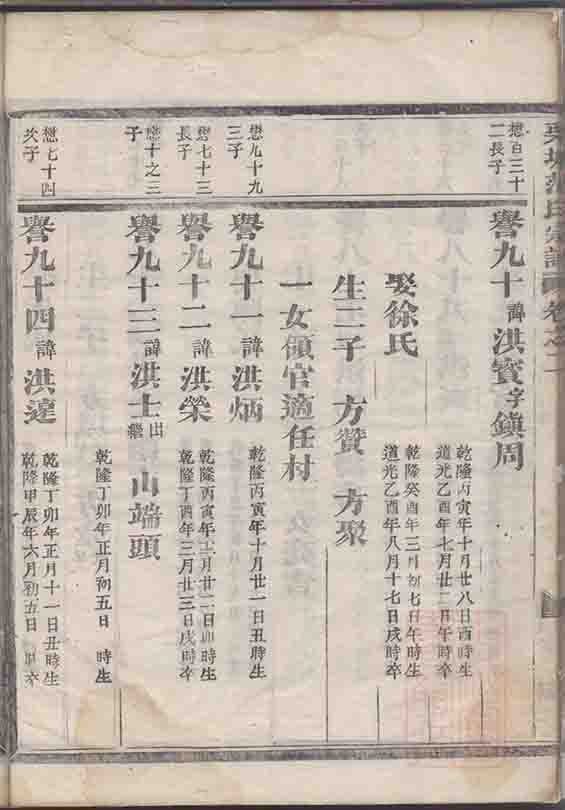 氏宗譜 卷之二
懋百三十
二長子
譽九十 諱 洪賓 字 鎮周
乾隆丙寅年十月廿八日酉時生
道光乙酉年七月廿二日午時卒
娶徐氏
乾隆癸酉年三月初七日午時生
道光乙酉年八月十七日戌時卒
生二子 方贊 方聚
一女領官適任村
懋九十九
三子
譽九十一 諱 洪炳
乾隆丙寅年十月廿一日丑時生
懋七十三
長子
譽九十二 諱 洪榮
乾隆丙寅年十一月廿二日卯時生
乾隆丁酉年三月廿三日戌時卒
懋十之三
子
譽九十三 諱 洪士 出繼 山端頭
乾隆丁卯年正月初五日 時生
懋七十四
次子
譽九十四 諱 洪達
乾隆丁卯年正月十一日丑時生
乾隆甲辰年六月初五日 時卒